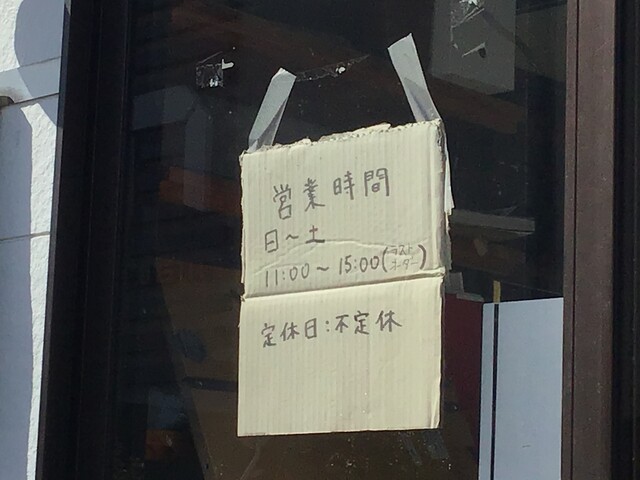 営業時間
日～土
11:00～15:00(ラストオーダー)
定休日:不定休